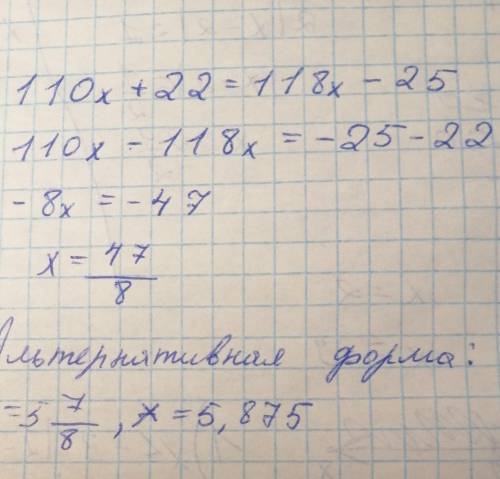 110x + 22 = 118x - 25
110x - 118x = -25 - 22
-8x = -47
x = 47/8
Альтернативная форма:
= 5 7/8, x = 5,875